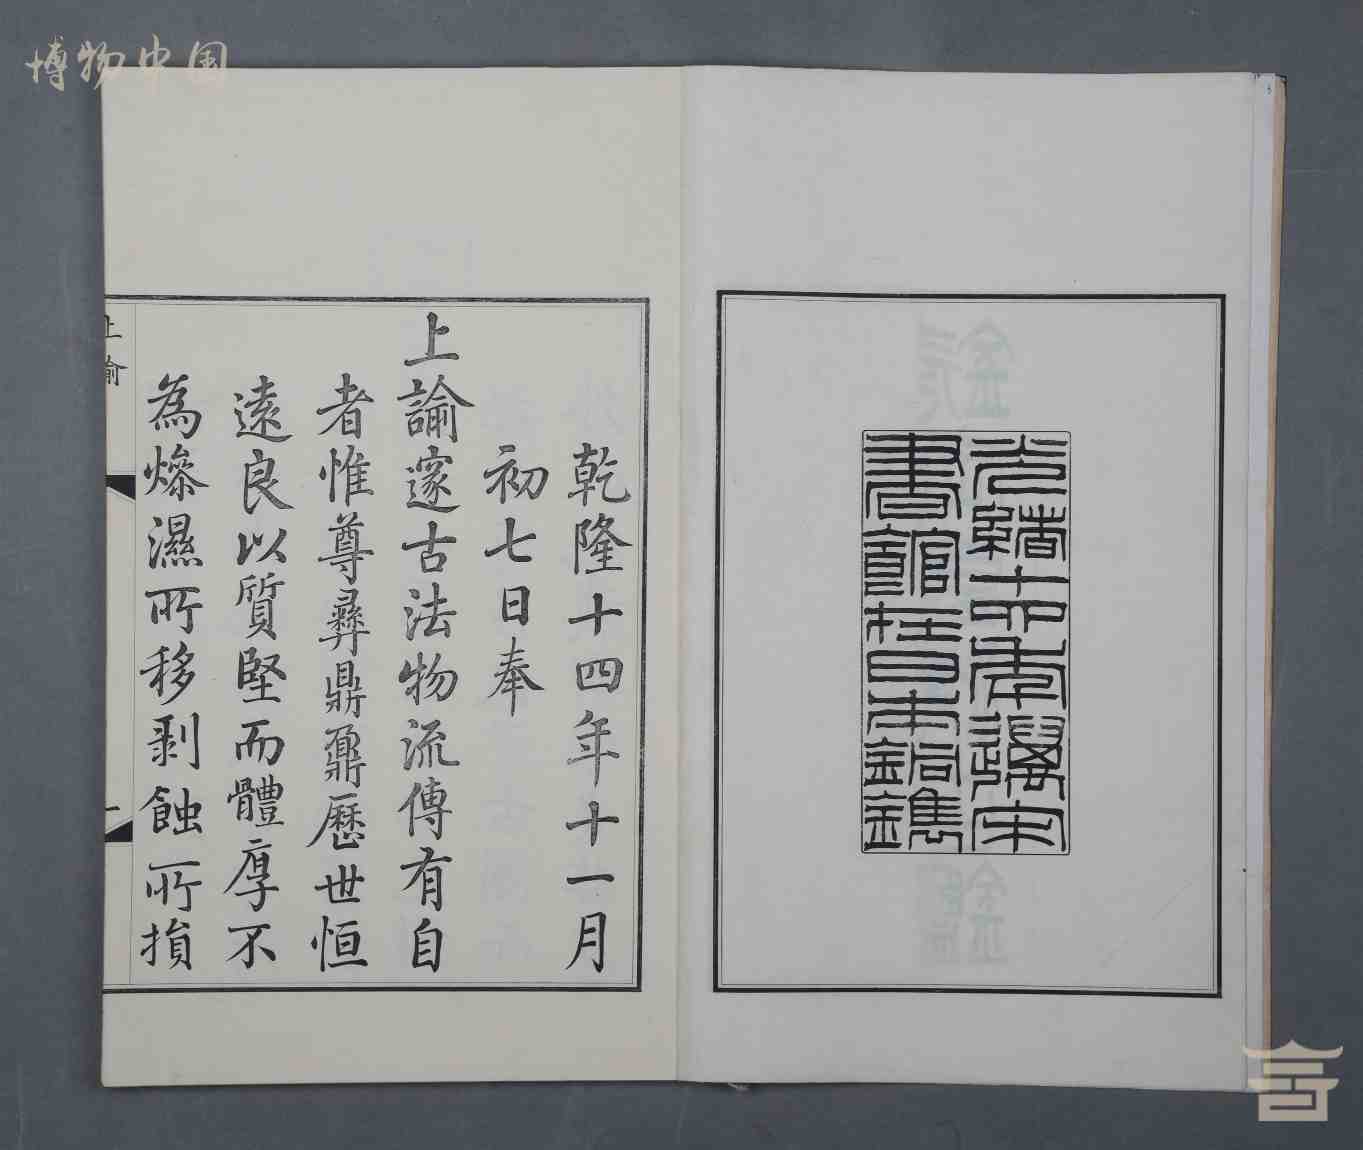 博物中国
光緒十四年邁宋
書館在日本銅鐫
乾隆十四年十一月
初七日奉
上諭邃古法物流傳有自
者惟尊彝鼎鼐歷世恒
遠良以質堅而體厚不
為燥濕所移剝蝕所損
上諭
一